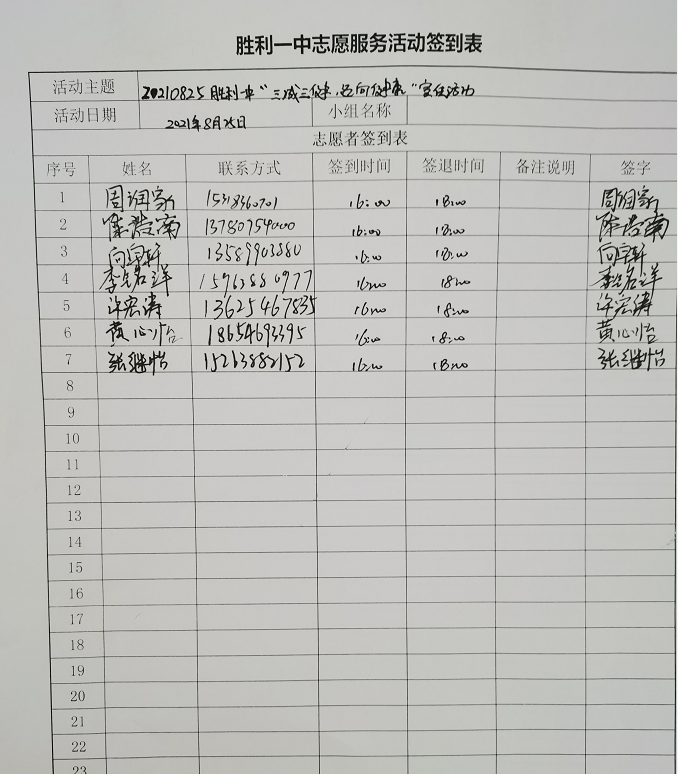 胜利一中志愿服务活动签到表
活动主题 20210825胜利一中“三减三健，迈向健康”宣传活动
活动日期 2021年8月25日 小组名称
志愿者签到表
序号 姓名 联系方式 签到时间 签退时间 备注说明 签字
1 周润家 16:00 18:00 周润家
2 陈浩南 13780754000 16:00 18:00 陈浩南
3 向宇轩 13589903880 16:00 18:00 向宇轩
4 李铭洋 15963880977 16:00 18:00 李铭洋
5 许宏涛 13625467835 16:00 18:00 许宏涛
6 黄心怡 18654693395 16:00 18:00 黄心怡
7 张继怡 15263882152 16:00 18:00 张继怡
8
9
10
11
12
13
14
15
16
17
18
19
20
21
22
23